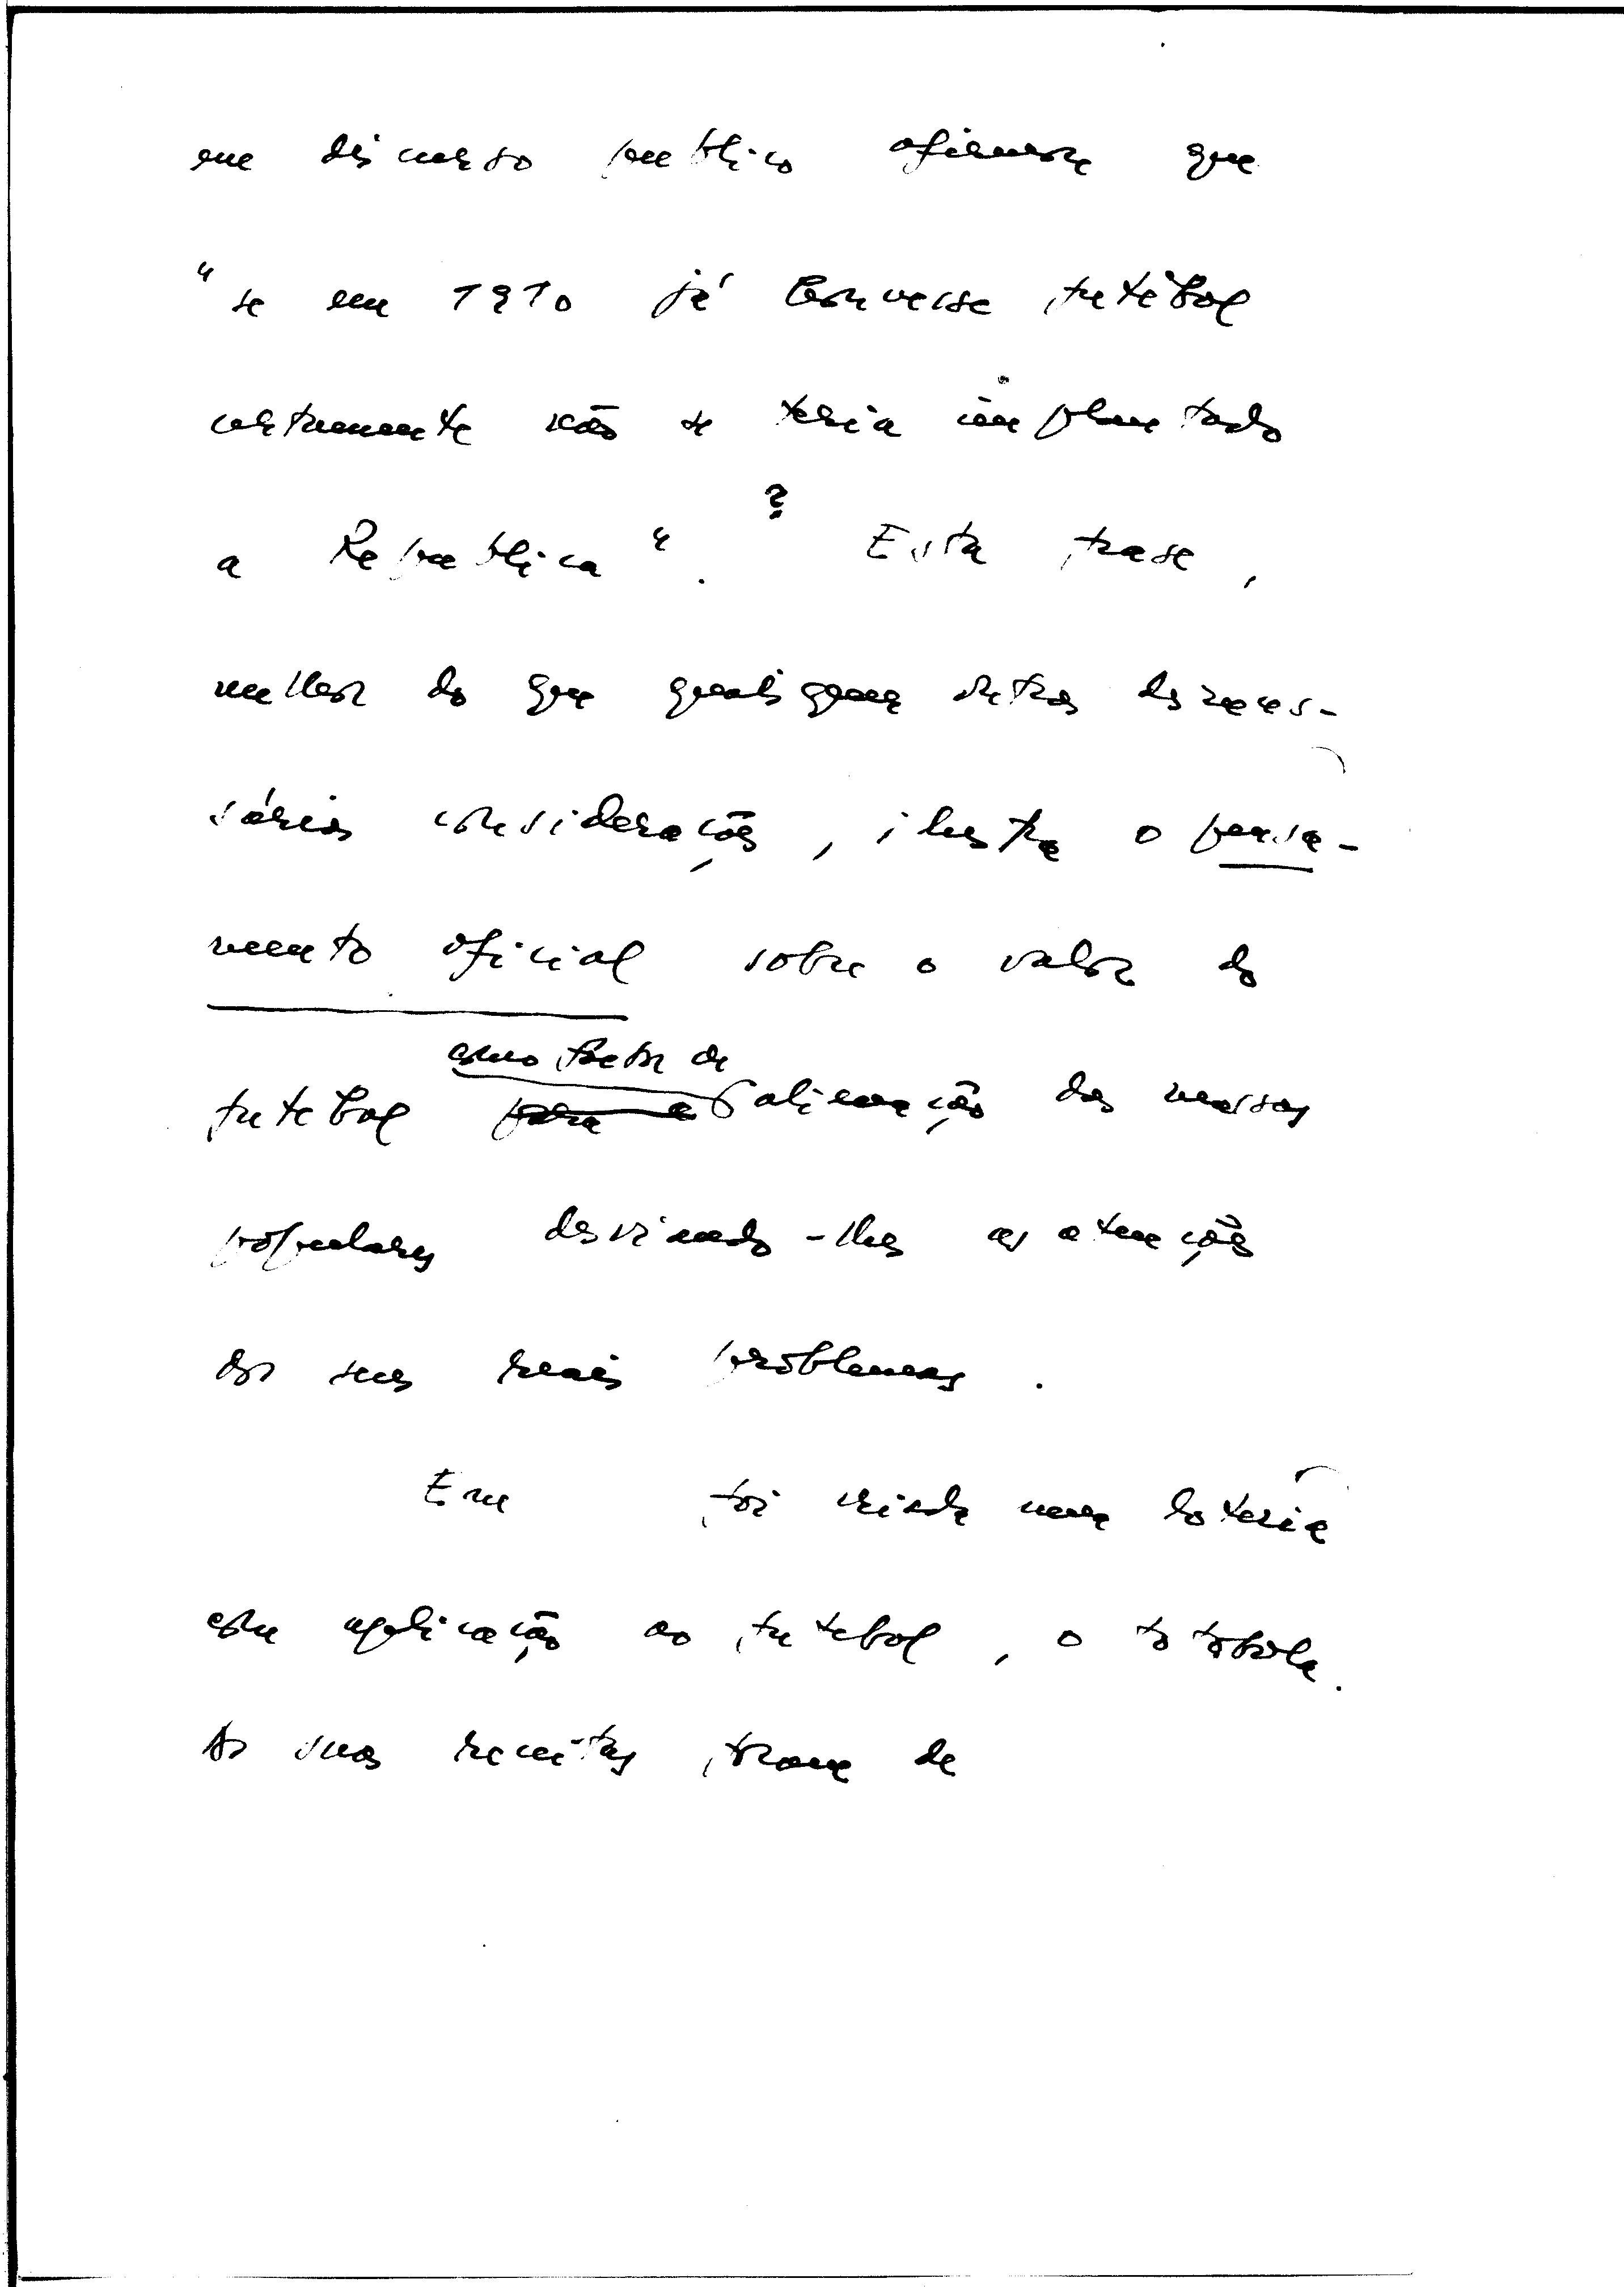 em discurso publico afirmou que
"se em 1910 já houvesse futebol
certamente não se teria implantado
a Republica". ? Esta frase,
melhor do que quaisquer outras desneces-
sárias considerações, ilustra o pensa-
mento oficial sobre o valor do
como factor de
futebol para a alienação das massas
populares desviando-lhes as atenções
dos seus reais problemas.
Em foi criada uma lotaria
com aplicação ao futebol, o totobola.
As suas receitas foram de